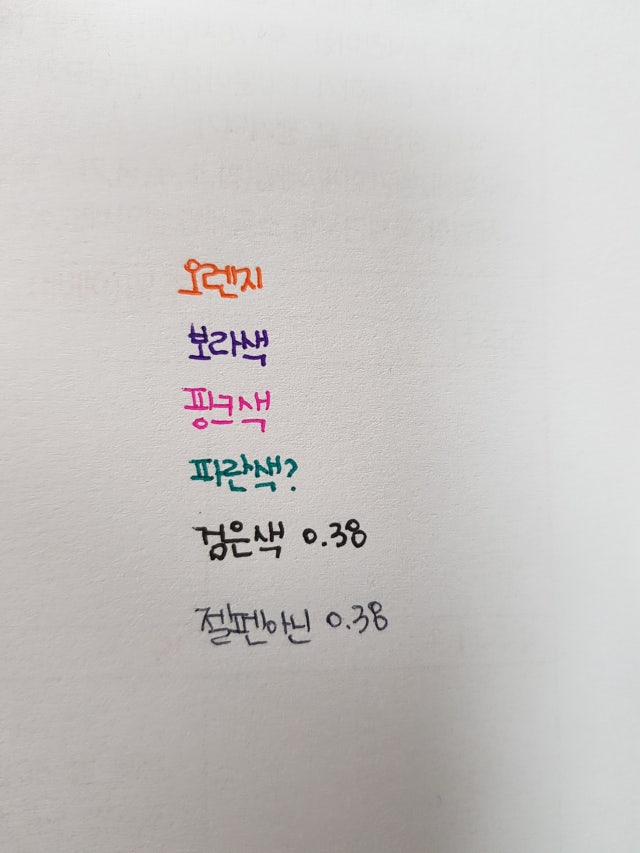 오렌지
보라색
핑크색
파란색?
검은색 0.38
젤펜아닌 0.38